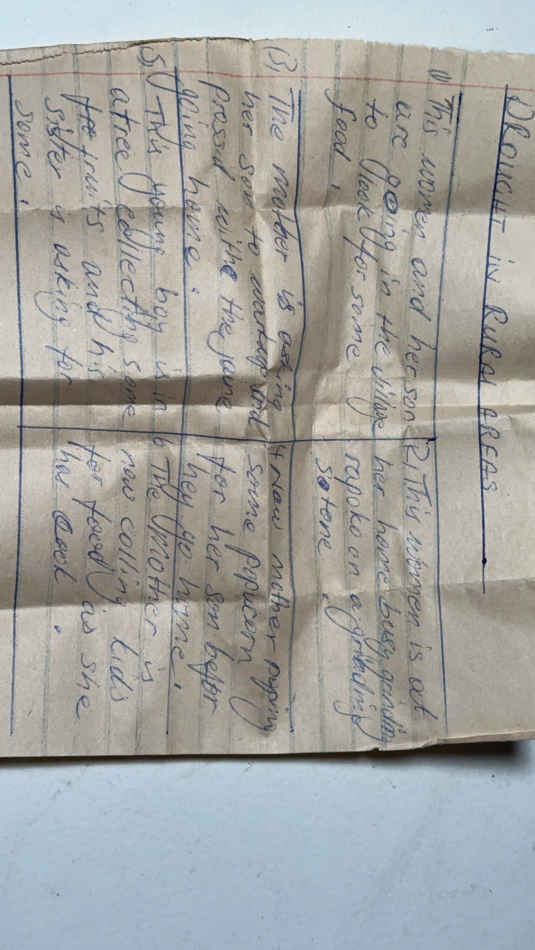 DROUGHT IN RURAL AREAS
1) This women and her son
are going in the village
to look for some
food,
2) This women is at
her home busy grinding
rapoko on a grinding
sotone
(3) The mother is asking
her son to and
proced withe the jane
going home.
4 Now mother buying
some popucorn
for her son befor
hey go home,
5) This young boy is in
a tree collecting some
fre fruits and his
sister is asking for
some.
6 The mother is
now calling kids
for food as she
has cook.